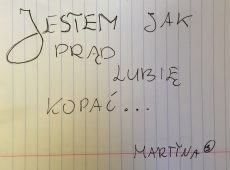 JESTEM JAK
PRĄD
LUBIĘ
KOPAĆ...
MARTYNA